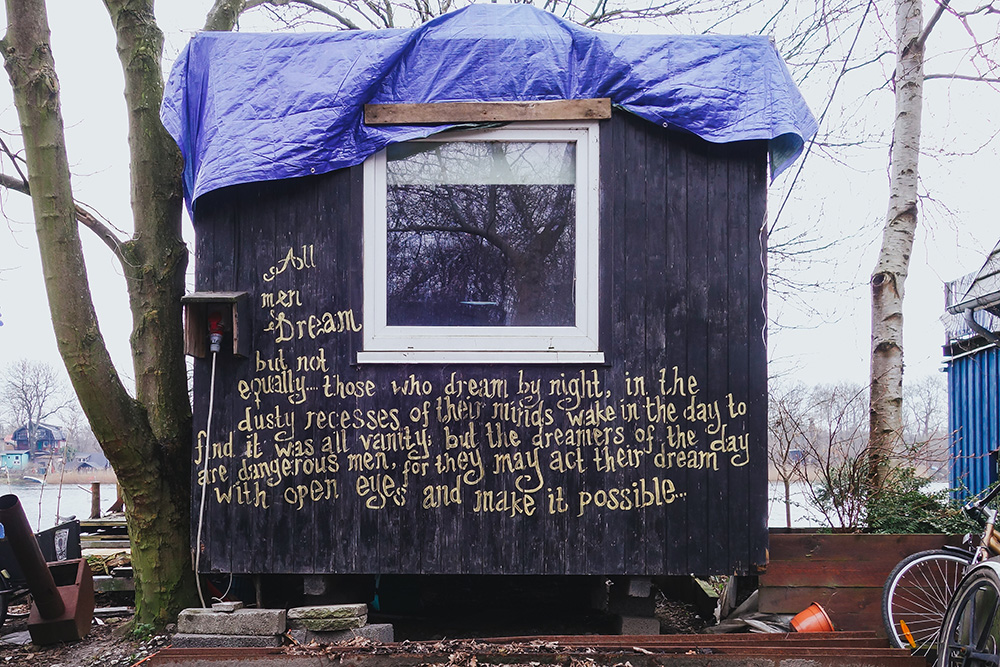 All
men
Dream
but not
equally.... those who dream by night, in the
dusty recesses of their minds wake in the day to
find it was all vanity; but the dreamers of the day
are dangerous men, for they may act their dream
with open eyes and make it possible...